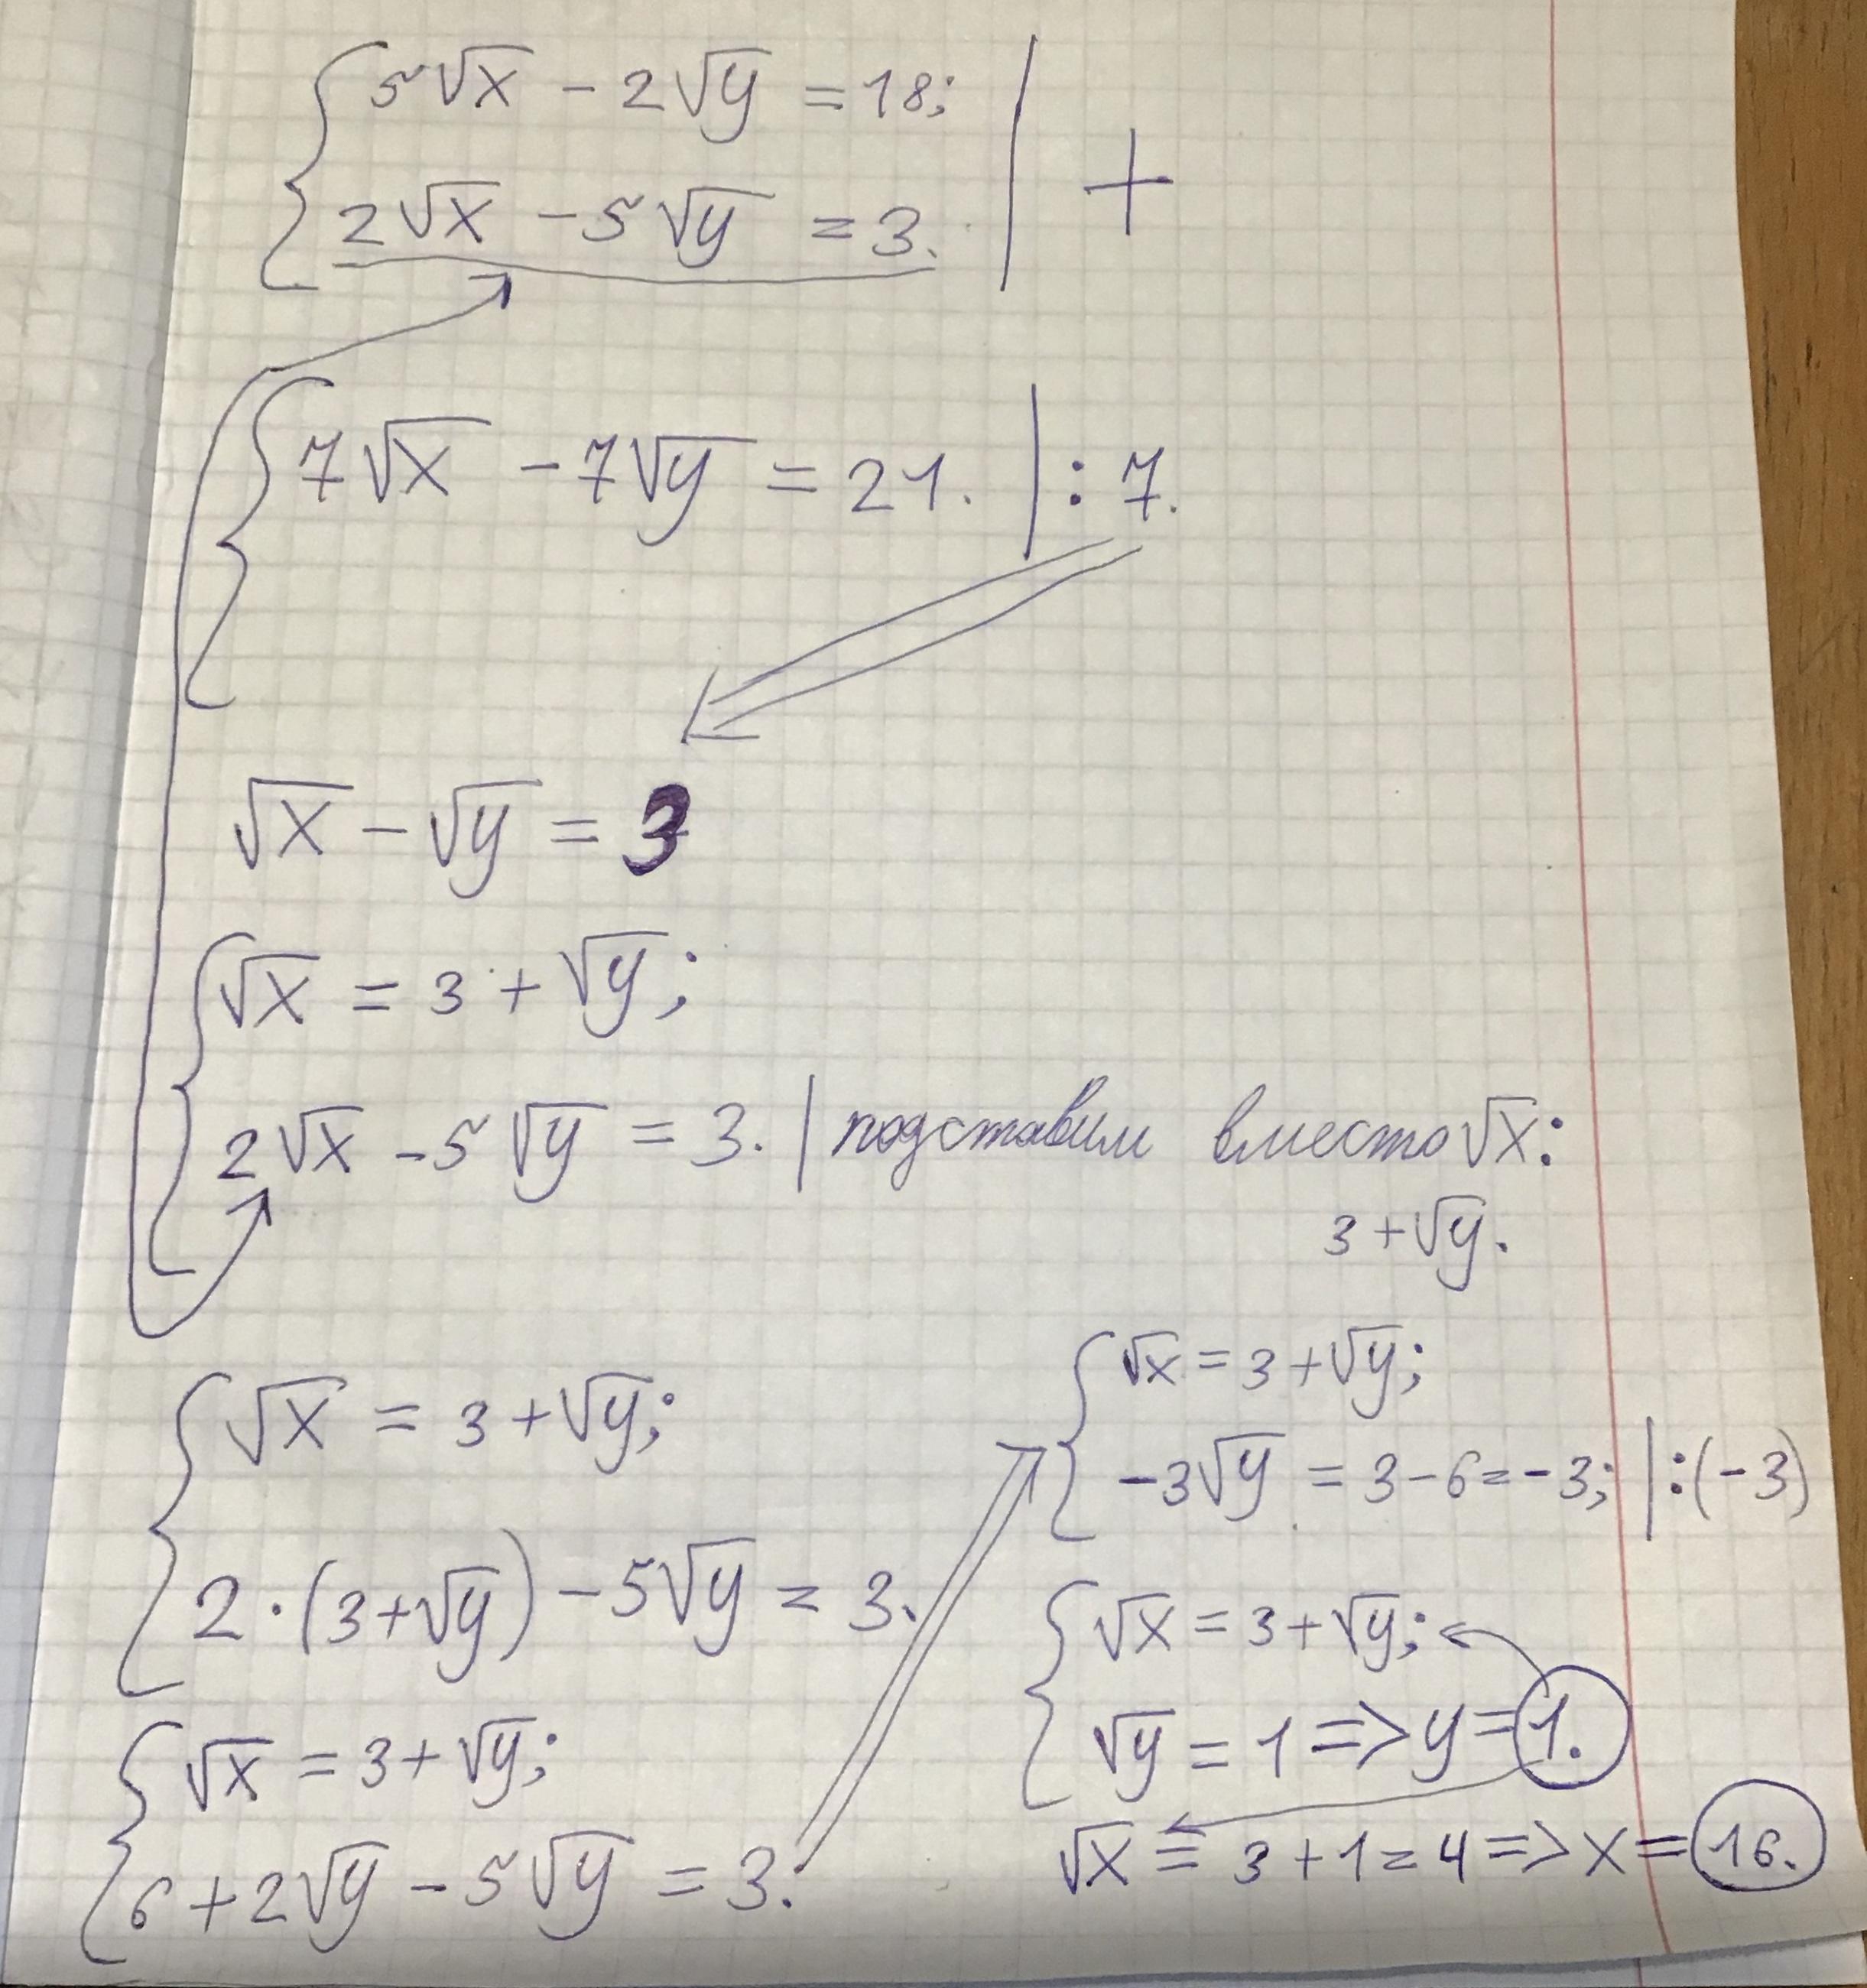 5√x - 2√y = 18; | +
2√x - 5√y = 3.
7√x - 7√y = 21. | : 7.
√x - √y = 3
√x = 3 + √y;
2√x - 5√y = 3. | подставим вместо √x:
3 + √y.
√x = 3 + √y;
2 · (3 + √y) - 5√y = 3.
√x = 3 + √y;
6 + 2√y - 5√y = 3.
√x = 3 + √y;
-3√y = 3 - 6 = -3; | : (-3)
√x = 3 + √y;
√y = 1 => y = 1.
√x = 3 + 1 = 4 => x = 16.